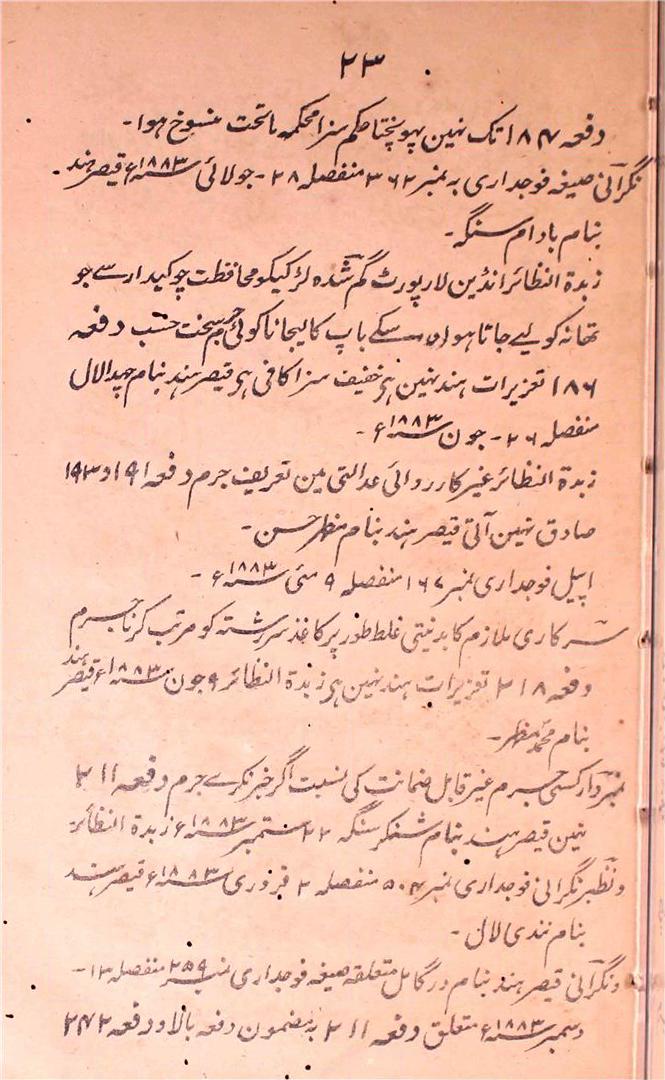 ۲۳
دفعہ ۱۸۴ تک نہین پہونچتا حکم سزا محکمہ ماتحت منسوخ ہوا۔
نگرانی صیغہ فوجداری بہ نمبر ۳۶۲ منفصلہ ۲۸۔ جولائی سنہ ۱۸۸۳ء قیصر ہند
بنام بادام سنگہ۔
زبدۃ النظائر انڈین لا رپورٹ گم شدہ لڑکیکو محافظت چوکیدار سے جو
تہانہ کو لیے جاتا ہو اوسکے باپ کا لیجانا کوئی جرم سخت حسب دفعہ
۱۸۶ تعزیرات ہند نہین ہی خفیف سزا کافی ہی قیصر ہند بنام الال
منفصلہ ۲۶۔ جون سنہ ۱۸۸۳ء۔
زبدۃ النظائر غیر کارروائی عدالتی مین تعریف جرم دفعہ ۱۹۱ و ۱۹۳
صادق نہین آتی قیصر ہند بنام مظہر حسن۔
اپیل فوجداری نمبر ۱۶۷ منفصلہ ۹ مئی سنہ ۱۸۸۳ء۔
سرکاری ملازم کا بدنیتی غلط طور پر کاغذ سررشتہ کو مرتب کرنا جرم
دفعہ ۲۱۸ تعزیرات ہند نہین ہی زبدۃ النظائر ۹ جون سنہ ۱۸۸۳ء قیصر ہند
بنام محمد مظہر۔
نمبردار کسی جرم غیر قابل ضمانت کی نسبت اگر خبر نکرے جرم دفعہ ۲۱۱
نہین قیصر ہند بنام شنکر سنگہ ۲۲ ستمبر سنہ ۱۸۸۳ء زبدۃ النظائر
ونظیر نگرانی فوجداری نمبر ۵۰۴ منفصلہ ۲ فروری سنہ ۱۸۸۳ء قیصر ہند
بنام نندی لال۔
ونگرانی قیصر ہند بنام متعلقہ صیغہ فوجداری نمبر ۲۵۹ منفصلہ ۱۳۔
دسمبر سنہ ۱۸۸۳ء متعلق دفعہ ۲۱۱ بہ مضمون دفعہ بالا و دفعہ ۲۴۲